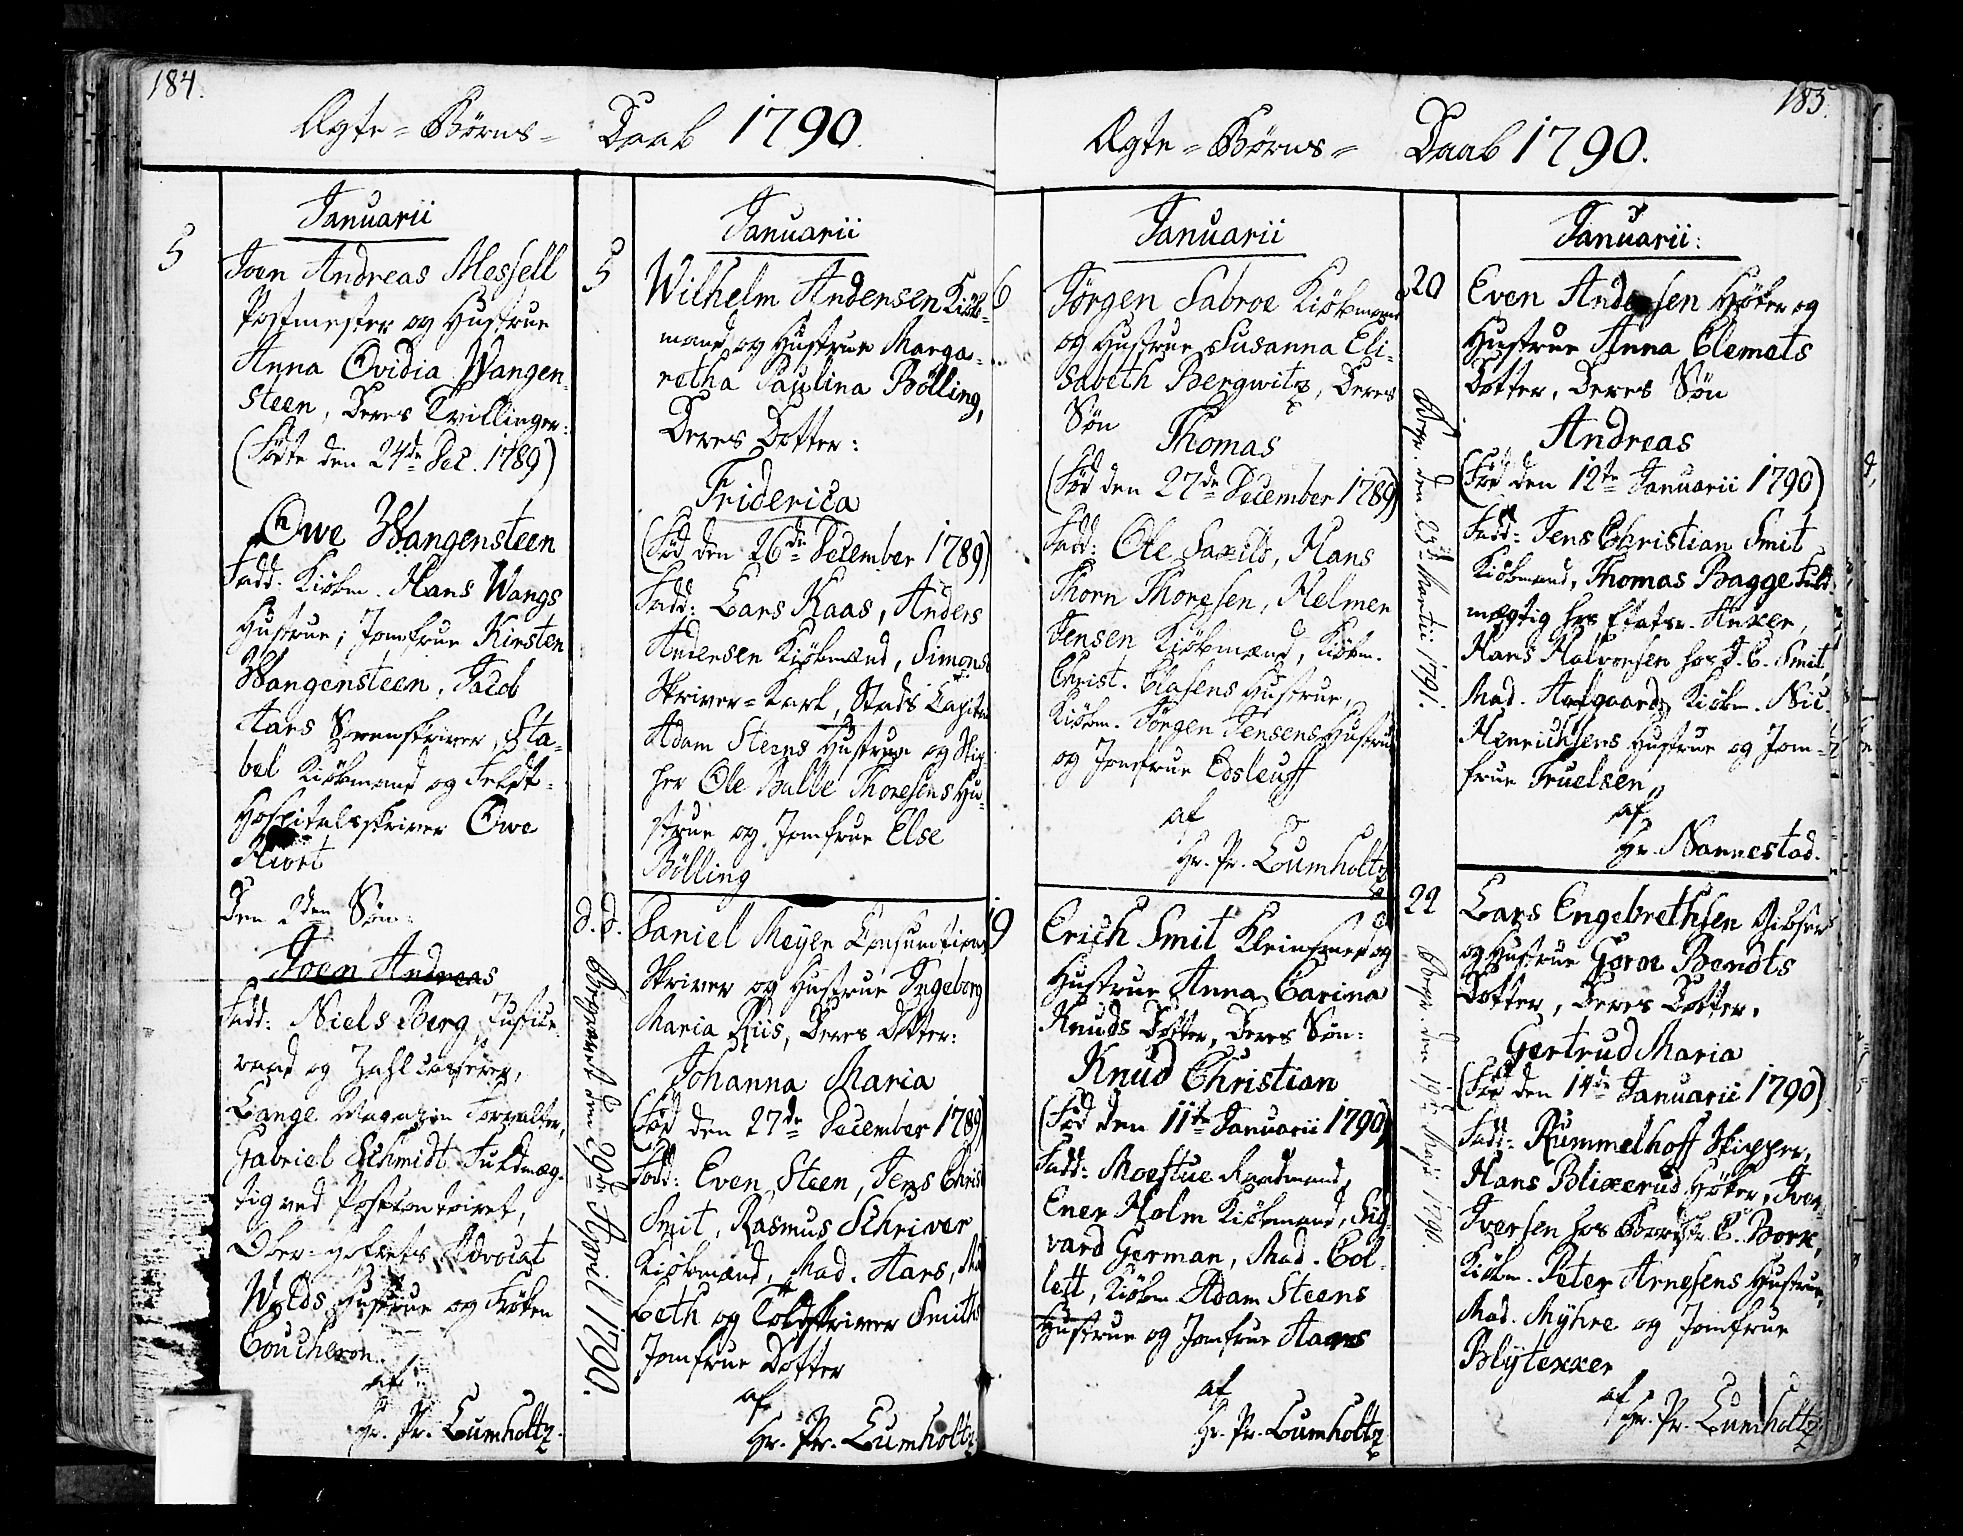 184.
Ægte=Börns= Daab 1790.
Januarii
5
Joen Andreas Messell
Postmester og Hustrue
Anna Ovidia Wangen-
steen, Deres Tvillinger:
(Födte den 24de Dec. 1789)
Owe Wangensteen
Fadd: Kiöbm. Hans Wangs
Hustrue, Jomfrue Kirsten
Wangensteen, Jacob
Aars skriver, Sta-
bel Kiöbmand og Feldt-
Hospitalsskriver Owe
Den 2den Sön:
Joen Andreas
Fadd: Niels Berg, Justice
raad og Zahlcasserer,
Lange Magazin Forvalter,
Gabriel Schmidt Fuldmæg-
tig ved Postcontoiret,
Ober-Hofrets Advocat
Wulds Hustrue og Fröken
Coucheron.
af
Hr. Pr. Lumholtz.
Januarii
5
Wilhelm Andersen Kiöb-
mand og Hustrue Marga-
retha Paulina Bölling,
Deres Dotter:
Friderica
(Föd den 26de December 1789)
Fadd: Lars Kaas, Anders
Andersen Kiöbmænd, Simons
Skriver-Karl, Stads Capitain
Adam Steens Hustrue og
Ole Bulle Thoresens Hu-
strue og Jomfrue Else
Bölling
d. d.
Daniel Meyer Consumtions
Skriver og Hustrue Ingeborg
Maria Riis, Deres Dotter:
Johanna Maria
(Föd den 27de December 1789)
Fadd: Even Steen, Jens Christ
Smit, Rasmus Schriver
Kiöbmænd, Mad. Aars, Mad
Leth og Toldskriver Smiths
Jomfrue Dotter
af
Hr. Pr. Lumholtz
Begravet den 29de April 1790.
185.
Ægte=Börns= Daab 1790.
Januarii
6
Jörgen Sabroe Kiöbmand
og Hustrue Susanna Eli-
sabeth Bergwitz, Deres
Sön
Thomas
(Föd den 27de December 1789)
Fadd: Ole Saxild, Hans
Thorn Thoresen, Helmer
Jensen Kiöbmænd, Kiöbm.
Christ. Clasens Hustrue,
Kiöbm. Jörgen Jensens Hustrue
og Jomfrue Edsleuff
af
Hr. Pr. Lumholtz
Begr. den 23de Martii 1791.
19
Erich Smit Kleinsmed og
Hustrue Anna Carina
Knuds Dotter, Deres Sön:
Knud Christian
(Föd den 11te Januarii 1790)
Fadd: Moestue Raadmand,
Ener Holm Kiöbmand, Sig-
vard German, Mad. Col-
lett, Kiöbm Adam Steens
Hustrue og Jomfrue Haars
af
Hr. Pr. Lumholtz
Begr. den 19de Maji 1790.
Januarii:
20
Even Andersen Höker og
Hustrue Anna Clemets
Dotter, Deres Sön
Andreas
(Föd den 12te Januarii 1790)
Fadd: Jens Christian Smit
Kiöbmand, Thomas Bagge Fuld-
mægtig hos Etatsr. Anker,
Hans Halvorsen hos J. C. Smit,
Mad. Aalgaard, Kiöbm. Nic.
Henrichsens Hustrue og Jom-
frue Truelsen
af
Hr. Nannestad.
22
Lars Engebrethsen
og Hustrue Gorne Bendts
Dotter, Deres Dotter.
Gertrud Maria
(Föd den 14de Januarii 1790)
Fadd: Rummelhoff Skipper,
Hans Blixerud Höker, Iver
Iversen hos C. Bork,
Kiöbm. Peter Arnesens Hustrue,
Mad. Myhre og Jomfrue
Blytekker
af
Hr. Pr. Lumholtz